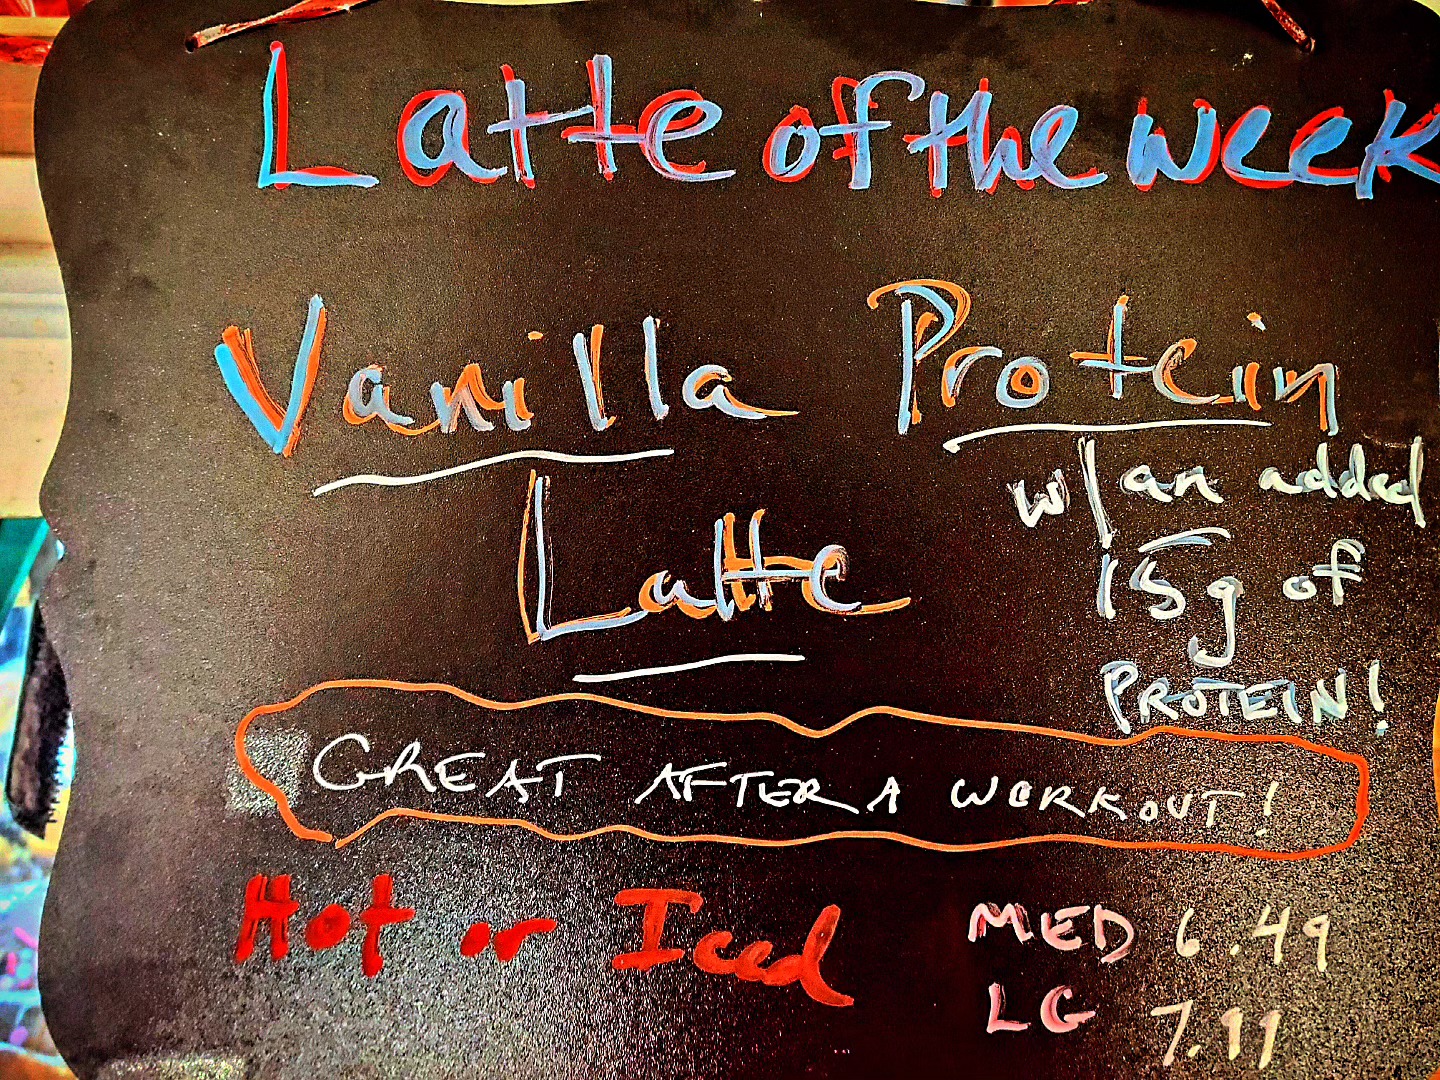 Latte of the week
Vanilla Protein
Latte
w/ an added
15g of
PROTEIN!
GREAT AFTER A WORKOUT!
Hot or Iced
MED 6.49
LG 7.99